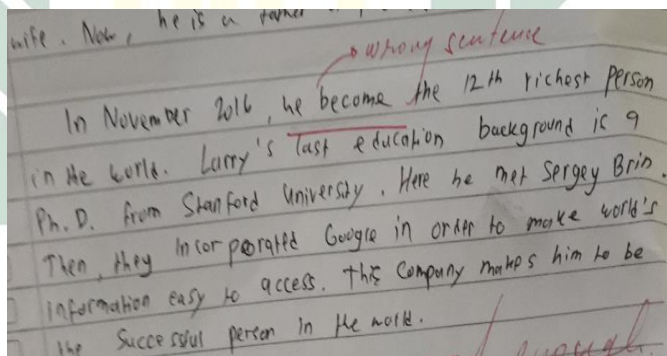 wife. Now, he is a father
wrong sentence
In November 2016, he become the 12th richest person
in the world. Larry's last education background is a
Ph.D. from Stanford University. Here he met Sergey Brin.
Then, they incorporated Google in order to make world's
information easy to access. This Company makes him to be
the Successful person in the world.